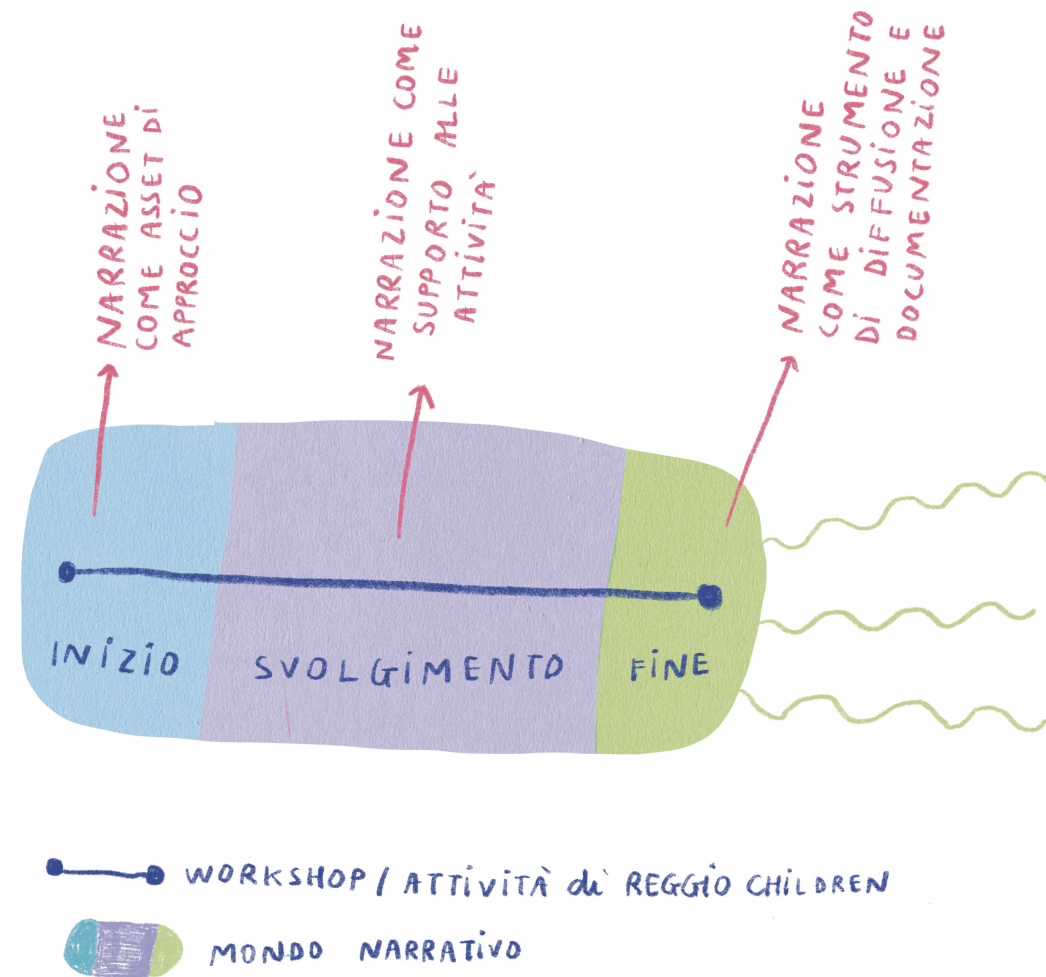 NARRAZIONE
COME ASSET DI
APPROCCIO
NARRAZIONE COME
SUPPORTO ALLE
ATTIVITÀ
NARRAZIONE
COME STRUMENTO
DI DIFFUSIONE E
DOCUMENTAZIONE
INIZIO
SVOLGIMENTO
FINE
WORKSHOP / ATTIVITÀ di REGGIO CHILDREN
MONDO NARRATIVO